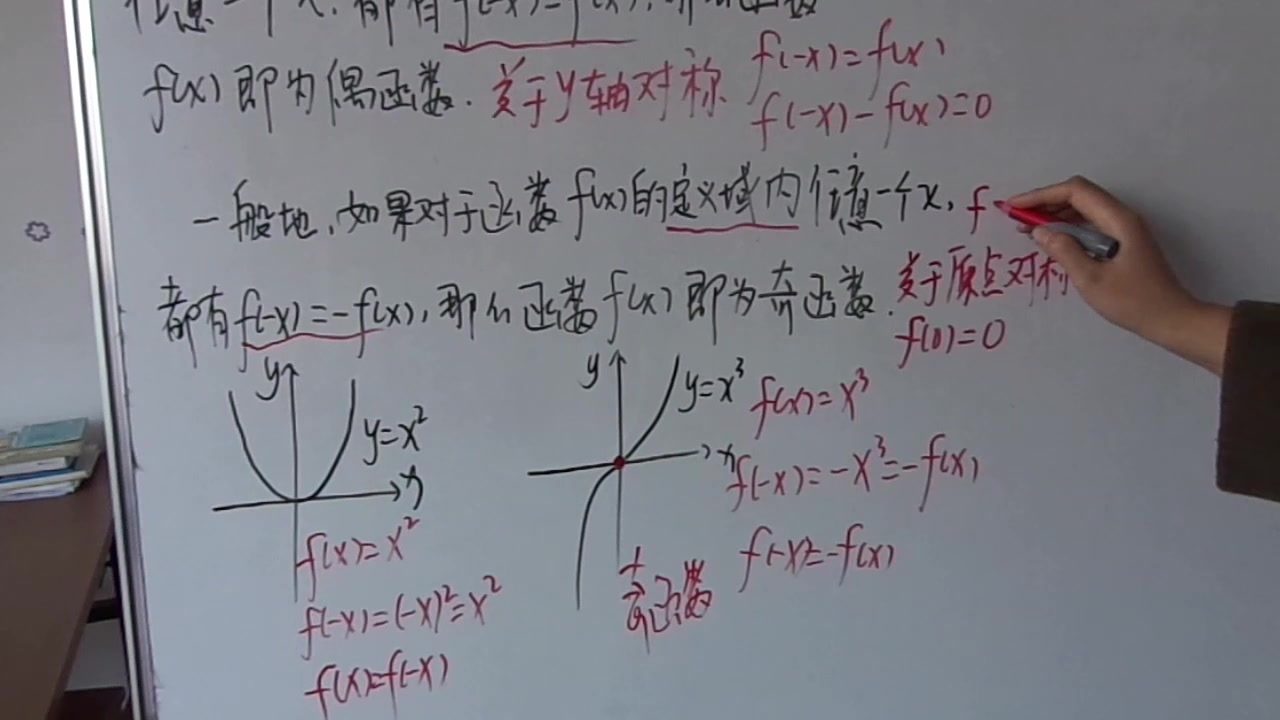 任意一个x,都有f(-x)=f(x),那么函数
f(x)即为偶函数. 关于y轴对称 f(-x)=f(x)
f(-x)-f(x)=0
一般地,如果对于函数f(x)的定义域内任意一个x, f
都有f(-x)=-f(x),那么函数f(x)即为奇函数. 关于原点对称
f(0)=0
y y=x² x
f(x)=x²
f(-x)=(-x)²=x²
f(x)=f(-x)
y y=x³ x
f(x)=x³
f(-x)=-x³=-f(x)
f(-x)=-f(x)
奇函数